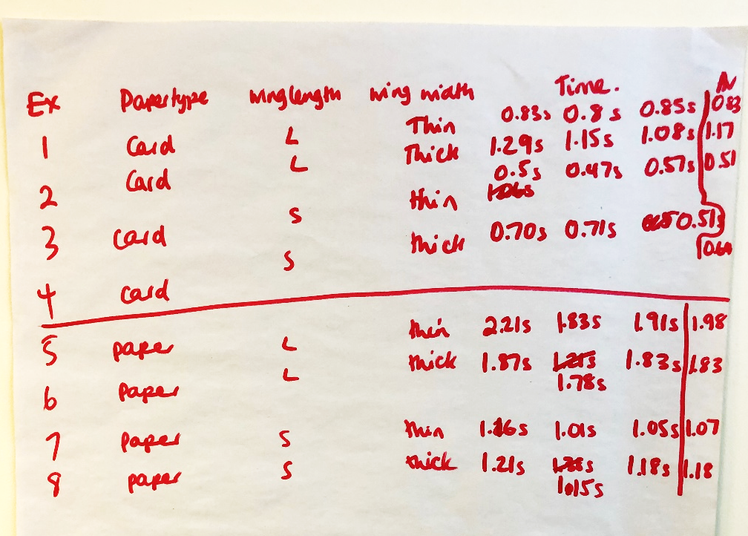 Ex Papertype winglength wing width Time. AV
1 Card L Thin 0.83s 0.8s 0.85s 0.83
2 Card L Thick 1.29s 1.15s 1.08s 1.17
3 Card S thin 0.5s 0.47s 0.57s 0.51
4 Card S thick 0.70s 0.71s 0.51s
5 paper L thin 2.21s 1.83s 1.91s 1.98
6 paper L thick 1.87s 1.21s 1.83s 1.83
1.78s
7 paper S thin 1.16s 1.01s 1.05s 1.07
8 paper S thick 1.21s 1.18s 1.18
1.15s